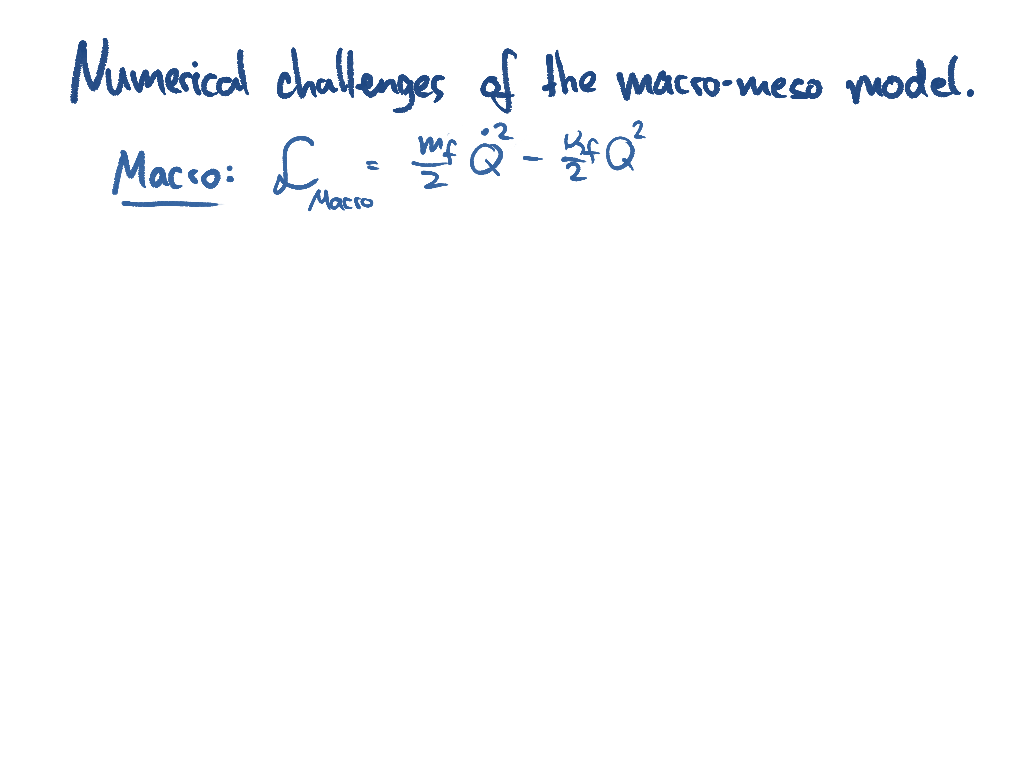 Numerical challenges of the macro-meso model.
Macro: ℒ_Macro = m_f/2 Q̇² − K_f/2 Q²